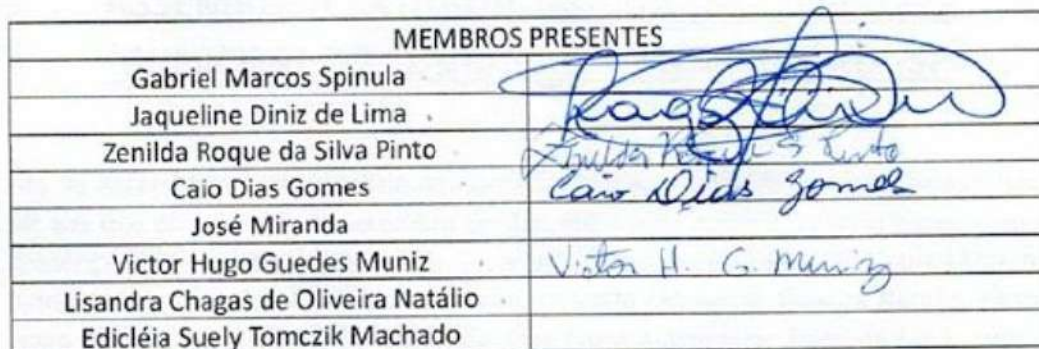 MEMBROS PRESENTES
Gabriel Marcos Spinula
Jaqueline Diniz de Lima
Zenilda Roque da Silva Pinto Zenilda Roque S Pinto
Caio Dias Gomes Caio Dias Gomes
José Miranda
Victor Hugo Guedes Muniz Victor H. G. Muniz
Lisandra Chagas de Oliveira Natálio
Edicléia Suely Tomczik Machado